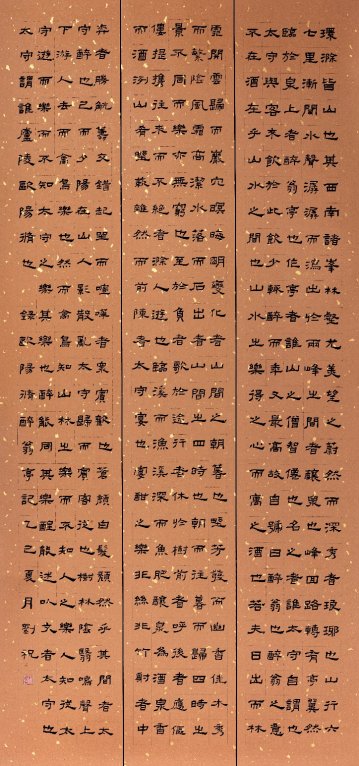 環滁皆山也其西南諸峯林壑尤美望之蔚然而深秀者琅琊也山行六
七里漸聞水聲潺潺而瀉出于兩峯之間者釀泉也峰回路轉有亭翼然
臨於泉上者醉翁亭也作亭者誰山之僧智僊也名之者誰太守自謂也
太守與客來飲於此飲少輒醉而年又最高故自號曰醉翁也醉翁之意
不在酒在乎山水之間也山水之樂得之心而寓之酒也若夫日出而林
霏開雲歸而巖穴暝晦明變化者山間之朝暮也野芳發而幽香佳木秀
而繁陰風霜高潔水落而石出者山間之四時也朝而往暮而歸四時之
景不同而樂亦無窮也至於負者歌於途行者休於樹前者呼後者應傴
僂提攜往來而不絕者滁人遊也臨溪而漁溪深而魚肥釀泉為酒泉香
而酒洌山肴野蔌雜然而前陳者太守宴也宴酣之樂非絲非竹射者中
弈者勝觥籌交錯起坐而諠譁者衆賓懽也蒼顏白髮頹然乎其間者太
守醉也已而夕陽在山人影散亂太守歸而賓客從也樹林陰翳鳴聲上
下遊人去而禽鳥樂也然而禽鳥知山林之樂而不知人之樂人知從太
守遊而樂而不知太守之樂其樂也醉能同其樂醒能述以文者太守也
太守謂誰廬陵歐陽脩也 錄歐陽脩醉翁亭記乙巳夏月劉祝